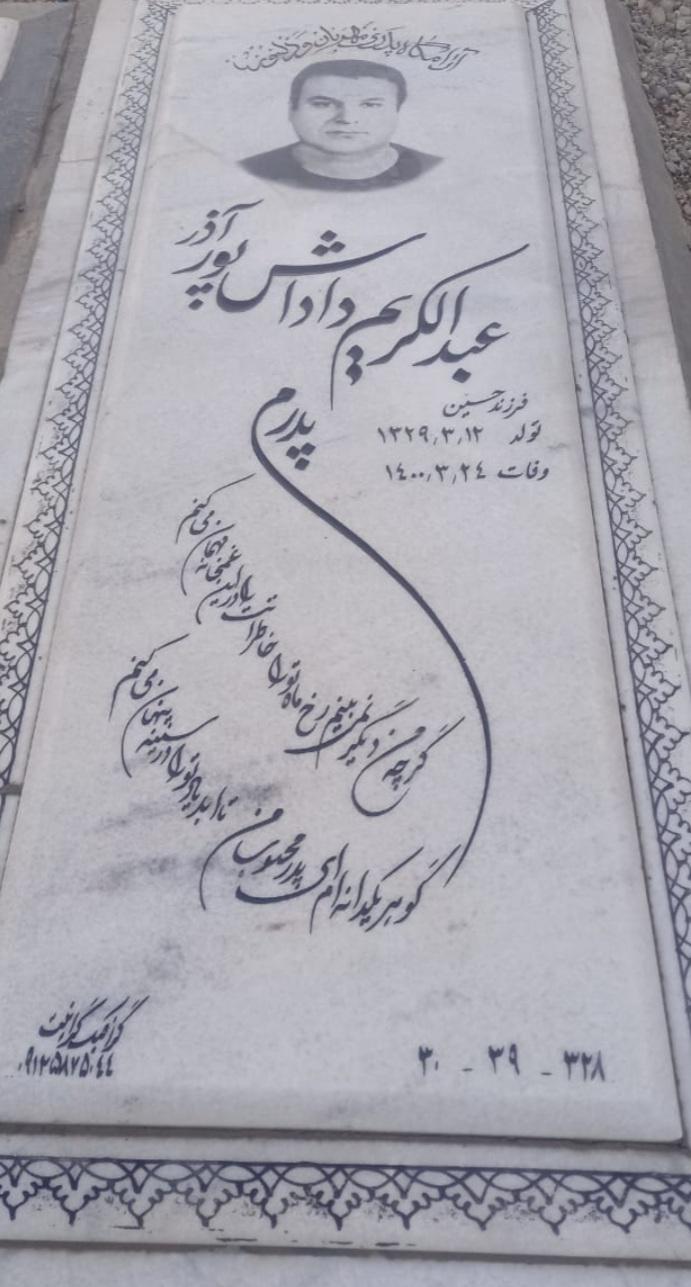 آرامگاه پدری مهربان و دلسوز
عبدالکریم داداش پور آذر
فرزند حسین
تولد ۱۳۲۹٫۳٫۱۲
وفات ۱۴۰۰٫۳٫۲۴
پدرم
گرچه من دیگر نمی بینم رخ ماه تو را
خاطراتت را در این غمخانه مهمان می کنم
گوهر یکدانه ام ای پدر محبوب من
تا ابد یاد تو را در سینه پنهان می کنم
۳۲۸ - ۳۹ - ۳۰
گرافیک گرانیت
۰۹۱۲۵۸۷۵۰۴۴